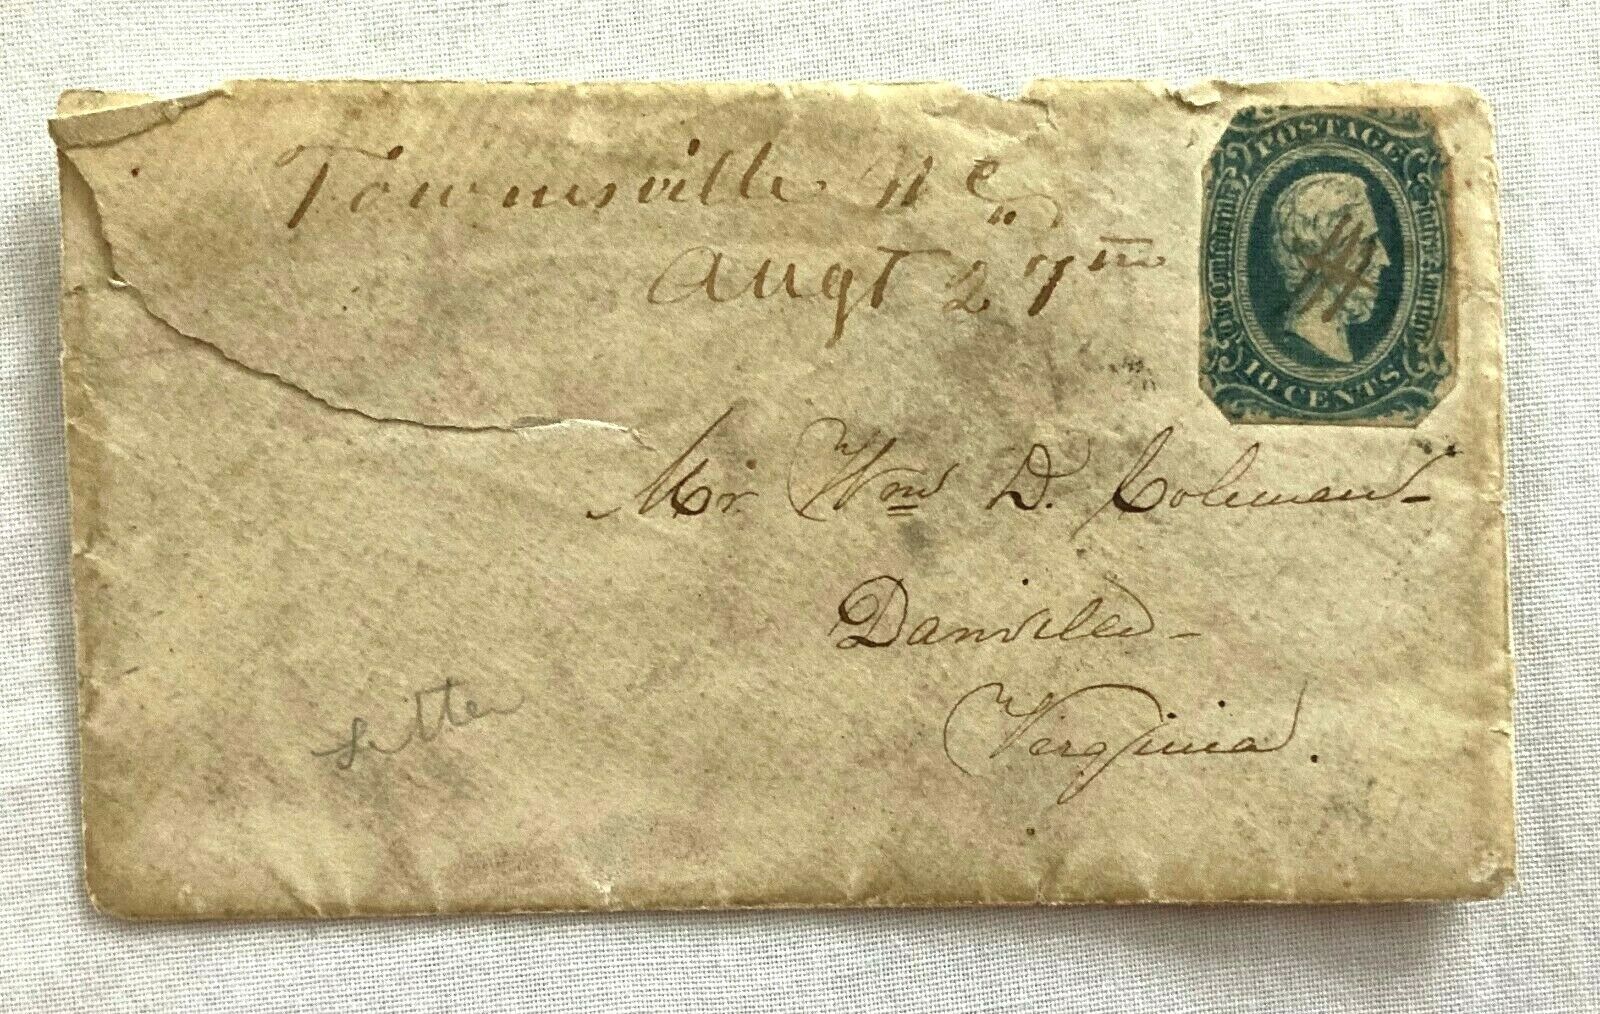 Townsville N C
Augt 27th
POSTAGE
The Confederate States of America
10 CENTS
Mr. Wm D. Coleman
Danville
Virginia.
Letter